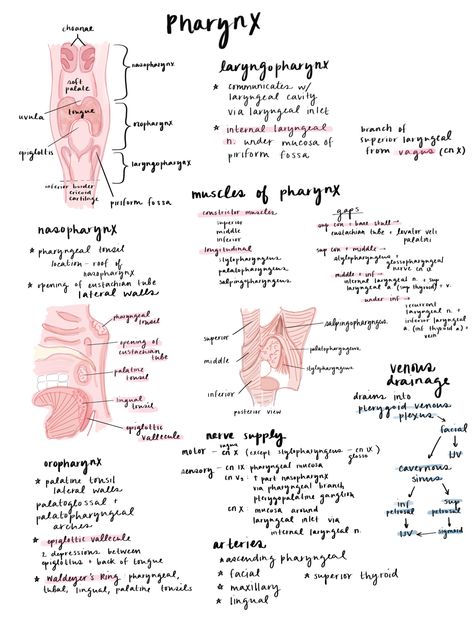 Pharynx
choanae
nasopharynx
soft
palate
uvula
tongue
oropharynx
epiglottis
laryngopharynx
inferior border
cricoid
cartilage
piriform fossa
laryngopharynx
* communicates w/
laryngeal cavity
via laryngeal inlet
* internal laryngeal
n. under mucosa of
piriform fossa
branch of
superior laryngeal
from vagus (CN X)
nasopharynx
* pharyngeal tonsil
location - roof of
nasopharynx
* opening of eustachian tube
lateral walls
muscles of pharynx
constrictor muscles
superior
middle
inferior
longitudinal
stylopharyngeus
palatopharyngeus
salpingopharyngeus
gaps
sup con + base skull →
eustachian tube + levator veli
palatini
sup con + middle →
stylopharyngeus + glossopharyngeal
nerve CN IX
middle + inf →
internal laryngeal n. + sup
laryngeal a. (sup thyroid) + v.
under inf →
recurrent
laryngeal n. +
inferior laryngeal
a. (inf thyroid a.) +
vein
pharyngeal
tonsil
opening of
eustachian
tube
palatine
tonsil
lingual
tonsil
epiglottic
vallecule
superior
middle
inferior
posterior view
salpingopharyngeus
palatopharyngeus
stylopharyngeus
venous
drainage
drains into
pterygoid venous
plexus
facial
IJV
cavernous
sinus
inf
petrosal
sup
petrosal
IJV
sigmoid
oropharynx
* palatine tonsil
lateral walls
* palatoglossal +
palatopharyngeal
arches
* epiglottic vallecule
2 depressions between
epiglottus + back of tongue
* Waldeyer's Ring pharyngeal,
tubal, lingual, palatine tonsils
nerve supply
vagus
motor - CN X (except stylopharyngeus - CN IX)
glosso
sensory - CN IX pharyngeal mucosa
CN V2 ↑ part nasopharynx
via pharyngeal branch
pterygopalatine ganglion
CN X mucosa around
laryngeal inlet via
internal laryngeal n.
arteries
* ascending pharyngeal
* facial
* maxillary
* lingual
* superior thyroid